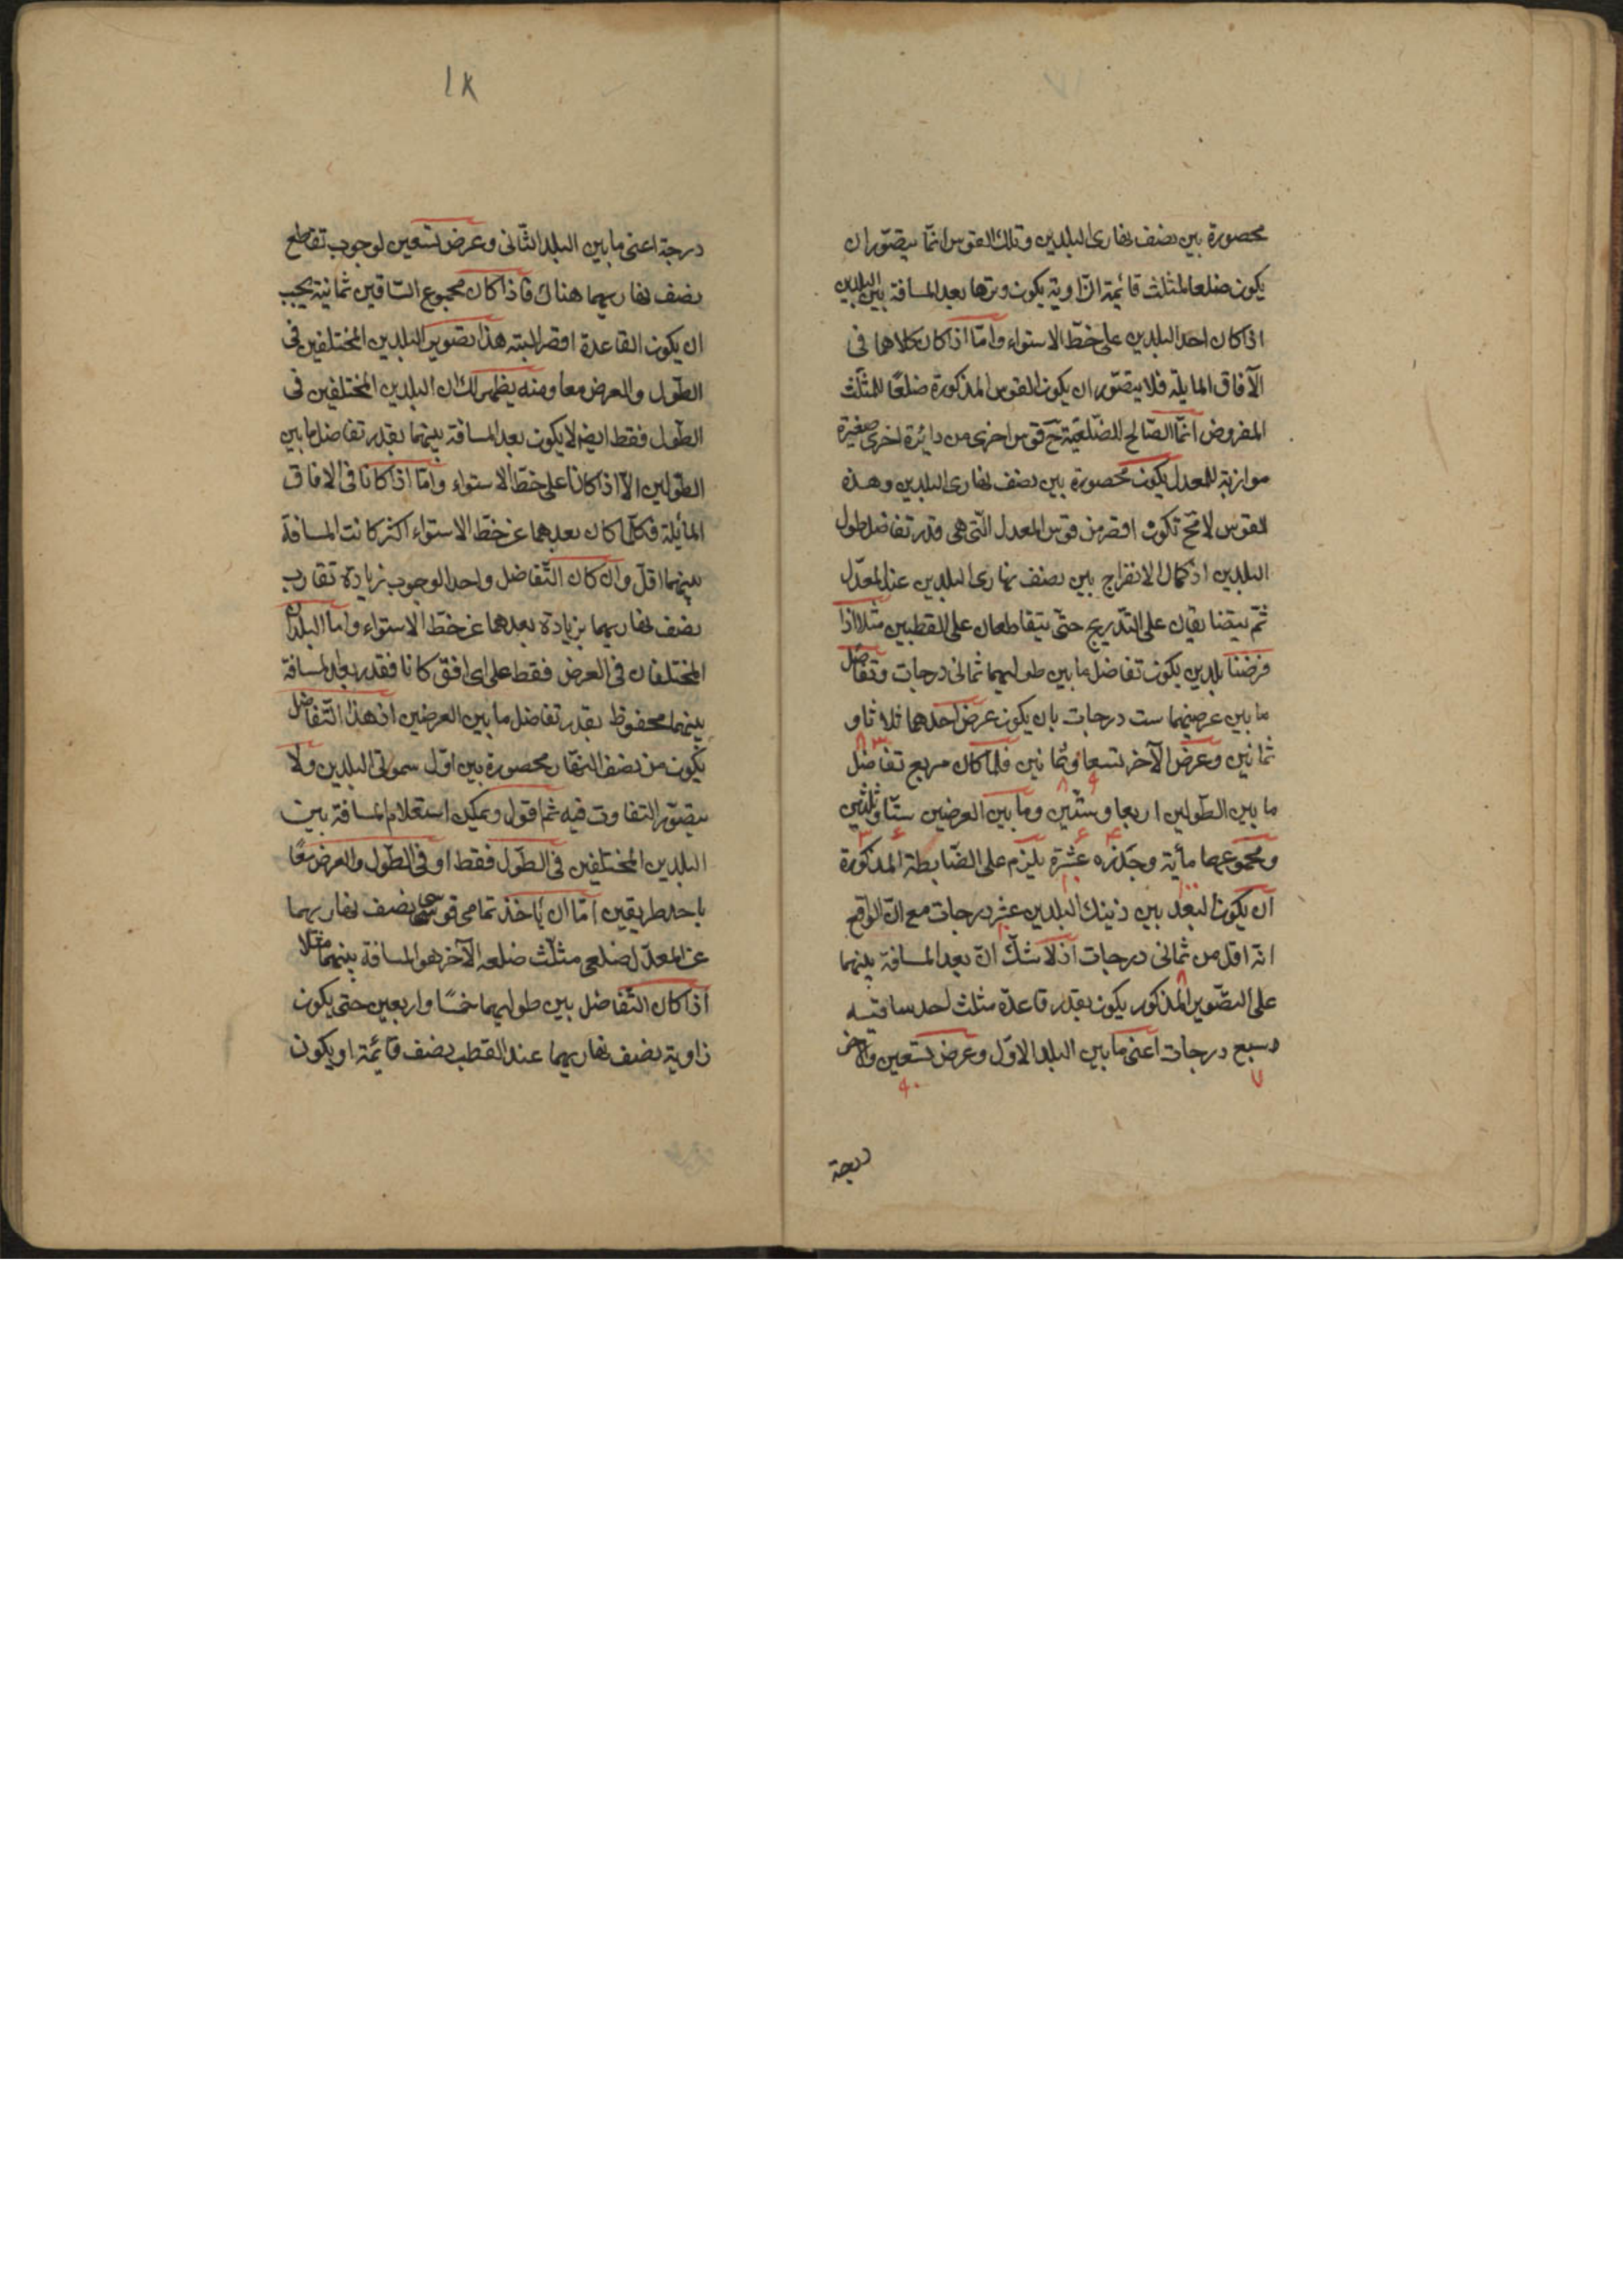 محصورة بين نصف نهارى البلدين وتلك القوس انّما يتصوّر ان
يكون ضلعا لمثلث قائمة الزّاوية يكون وترها بعد المسافة بين البلدين
اذا كان احد البلدين على خطّ الاستواء وامّا اذا كان كلاهما فى
الآفاق المايلة فلا يتصوّر ان يكون القوس المذكورة ضلعًا للمثلّث
المفروض انّما الصّالح للضّلعيّة ح قوس اخرى من دائرة اخرى صغيرة
موازية للمعدل يكون محصورة بين نصف نهارى البلدين وهذه
القوس لا مح تكون اقصر من قوس المعدل الّتى هى قدر تفاضل طول
البلدين اذ كمال الانفراج بين نصف نهارى البلدين عند المعدّل
ثمّ يتضايقان على التّدريج حتّى يتقاطعان على القطبين مثلا اذا
فرضنا بلدين يكون تفاضل ما بين طوليهما ثمانى درجات وتفاضل
ما بين عرضيهما ست درجات بان يكون عرض احدهما ثلاثا و
٨٣
ثمانين وعرض الآخر تسعا وثمانين فلمّا كان مربع تفاضل
٨ ٩
ما بين الطّولين اربعا وستّين وما بين العرضين ستّا وثلثين
٣ ۶ ۶ ۴
ومجموعهما مأية وجذره عشرة يلزم على الضّابطة المذكورة
١٠ ١٠٠
ان يكون البعد بين ذينك البلدين عشر درجات مع انّ الواقع
انّه اقل من ثمانى درجات اذ لا شكّ انّ بعد المسافة بينهما
٨
على التصّوير المذكور يكون بقدر قاعدة مثلث احد ساقيه
سبع درجات اعنى ما بين البلد الاوّل وعرض تسعين والاخر
٩٠ ٧
درجة
١٨
درجة اعنى ما بين البلد الثّانى وعرض تسعين لوجوب تقاطع
نصف نهاريهما هناك فاذا كان مجموع السّاقين ثمانية يجب
ان يكون القاعدة اقصر البته هذا تصوير البلدين المختلفين فى
الطّول والعرض معا ومنه يظهر لك ان البلدين المختلفين فى
الطّول فقط ايضا لا يكون بعد المسافة بينهما بقدر تفاضل ما بين
الطّولين الّا اذا كانا على خطّ الاستواء وامّا اذا كانا فى الافاق
المائلة فكلّما كان بعدهما عن خطّ الاستواء اكثر كانت المسافة
بينهما اقلّ وان كان التّفاضل واحدا لوجوب زيادة تقارب
نصف نهاريهما بزيادة بعدهما عن خطّ الاستواء وامّا البلدان
المختلفان فى العرض فقط على اى افق كانا فقدر بعد المسافة
بينهما محفوظ بقدر تفاضل ما بين العرضين اذ هذا التّفاضل
يكون من نصف النّهار محصورة بين اوّل سموتى البلدين ولا
يتصوّر التفاوت فيه ثم اقول ويمكن استعلام المسافة بين
البلدين المختلفين فى الطّول فقط او فى الطّول والعرض معًا
باحد طريقين امّا ان ياخذ تمامى قوسى نصف نهاريهما
عن المعدّل ضلعى مثلّث ضلعه الآخر هو المسافة بينهما مثلا
اذا كان التّفاضل بين طوليهما خمسًا واربعين حتى يكون
زاوية نصف نهاريهما عند القطب نصف قائمة او يكون